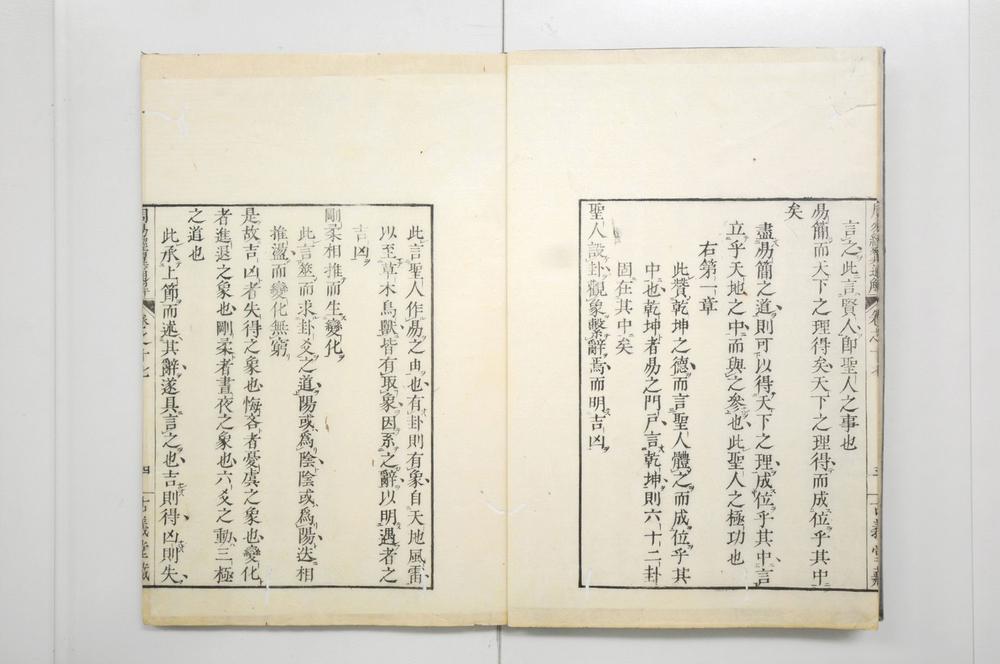 言之此言賢人即聖人之事也
易簡而天下之理得矣天下之理得而成位乎其中
矣
盡易簡之道則可以得天下之理成位乎其中言
立乎天地之中而與之參也此聖人之極功也
右第一章
此贊乾坤之德而言聖人體之而成位乎其
中也乾坤者易之門戶言乾坤則六十二卦
固在其中矣
聖人設卦觀象繫辭焉而明吉凶
此言聖人作易之由也有卦則有象自天地風雷
以至草木鳥獸皆有取象因系之辭以明遇者之
吉凶
剛柔相推而生變化
此言筮而求卦爻之道陽或爲陰陰或爲陽迭相
推盪而變化無窮
是故吉凶者失得之象也悔吝者憂虞之象也變化
者進退之象也剛柔者晝夜之象也六爻之動三極
之道也
此承上節而述其辭遂具言之也吉則得凶則失
卷之十七 四 古義堂藏